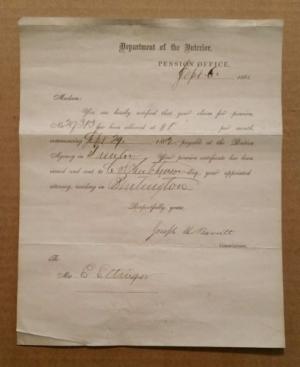 Department of the Interior,
PENSION OFFICE,
Sept 6. 186
Madam:
You are hereby notified that your claim for pension,
No. 27,383 has been allowed at $8 per month,
commencing Sept 29, 1862, payable at the Pension
Agency in Trenton Your pension certificate has been
issued and sent to Esq. your appointed
attorney, residing in Burlington
Respectfully yours,
Joseph H Barrett
Commissioner.
To
Mrs E Ettinger